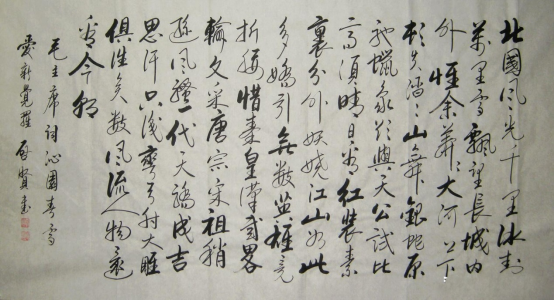 北國风光千里冰封
萬里雪飄望長城内
外惟余莽莽大河上下
頓失滔滔山舞銀蛇原
驰蠟象欲與天公試比
高須晴日看紅裝素
裹分外妖娆江山如此
多嬌引無數英雄竞
折腰惜秦皇漢武畧
輸文采唐宗宋祖稍
遜风騷一代天骄成吉
思汗只識彎弓射大雕
俱往矣數风流人物還
看今朝
毛主席詞沁園春雪
愛新覺羅